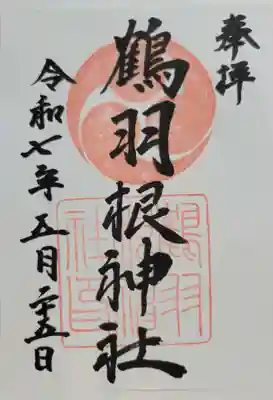 奉拝
鶴羽根神社
令和七年五月二十五日